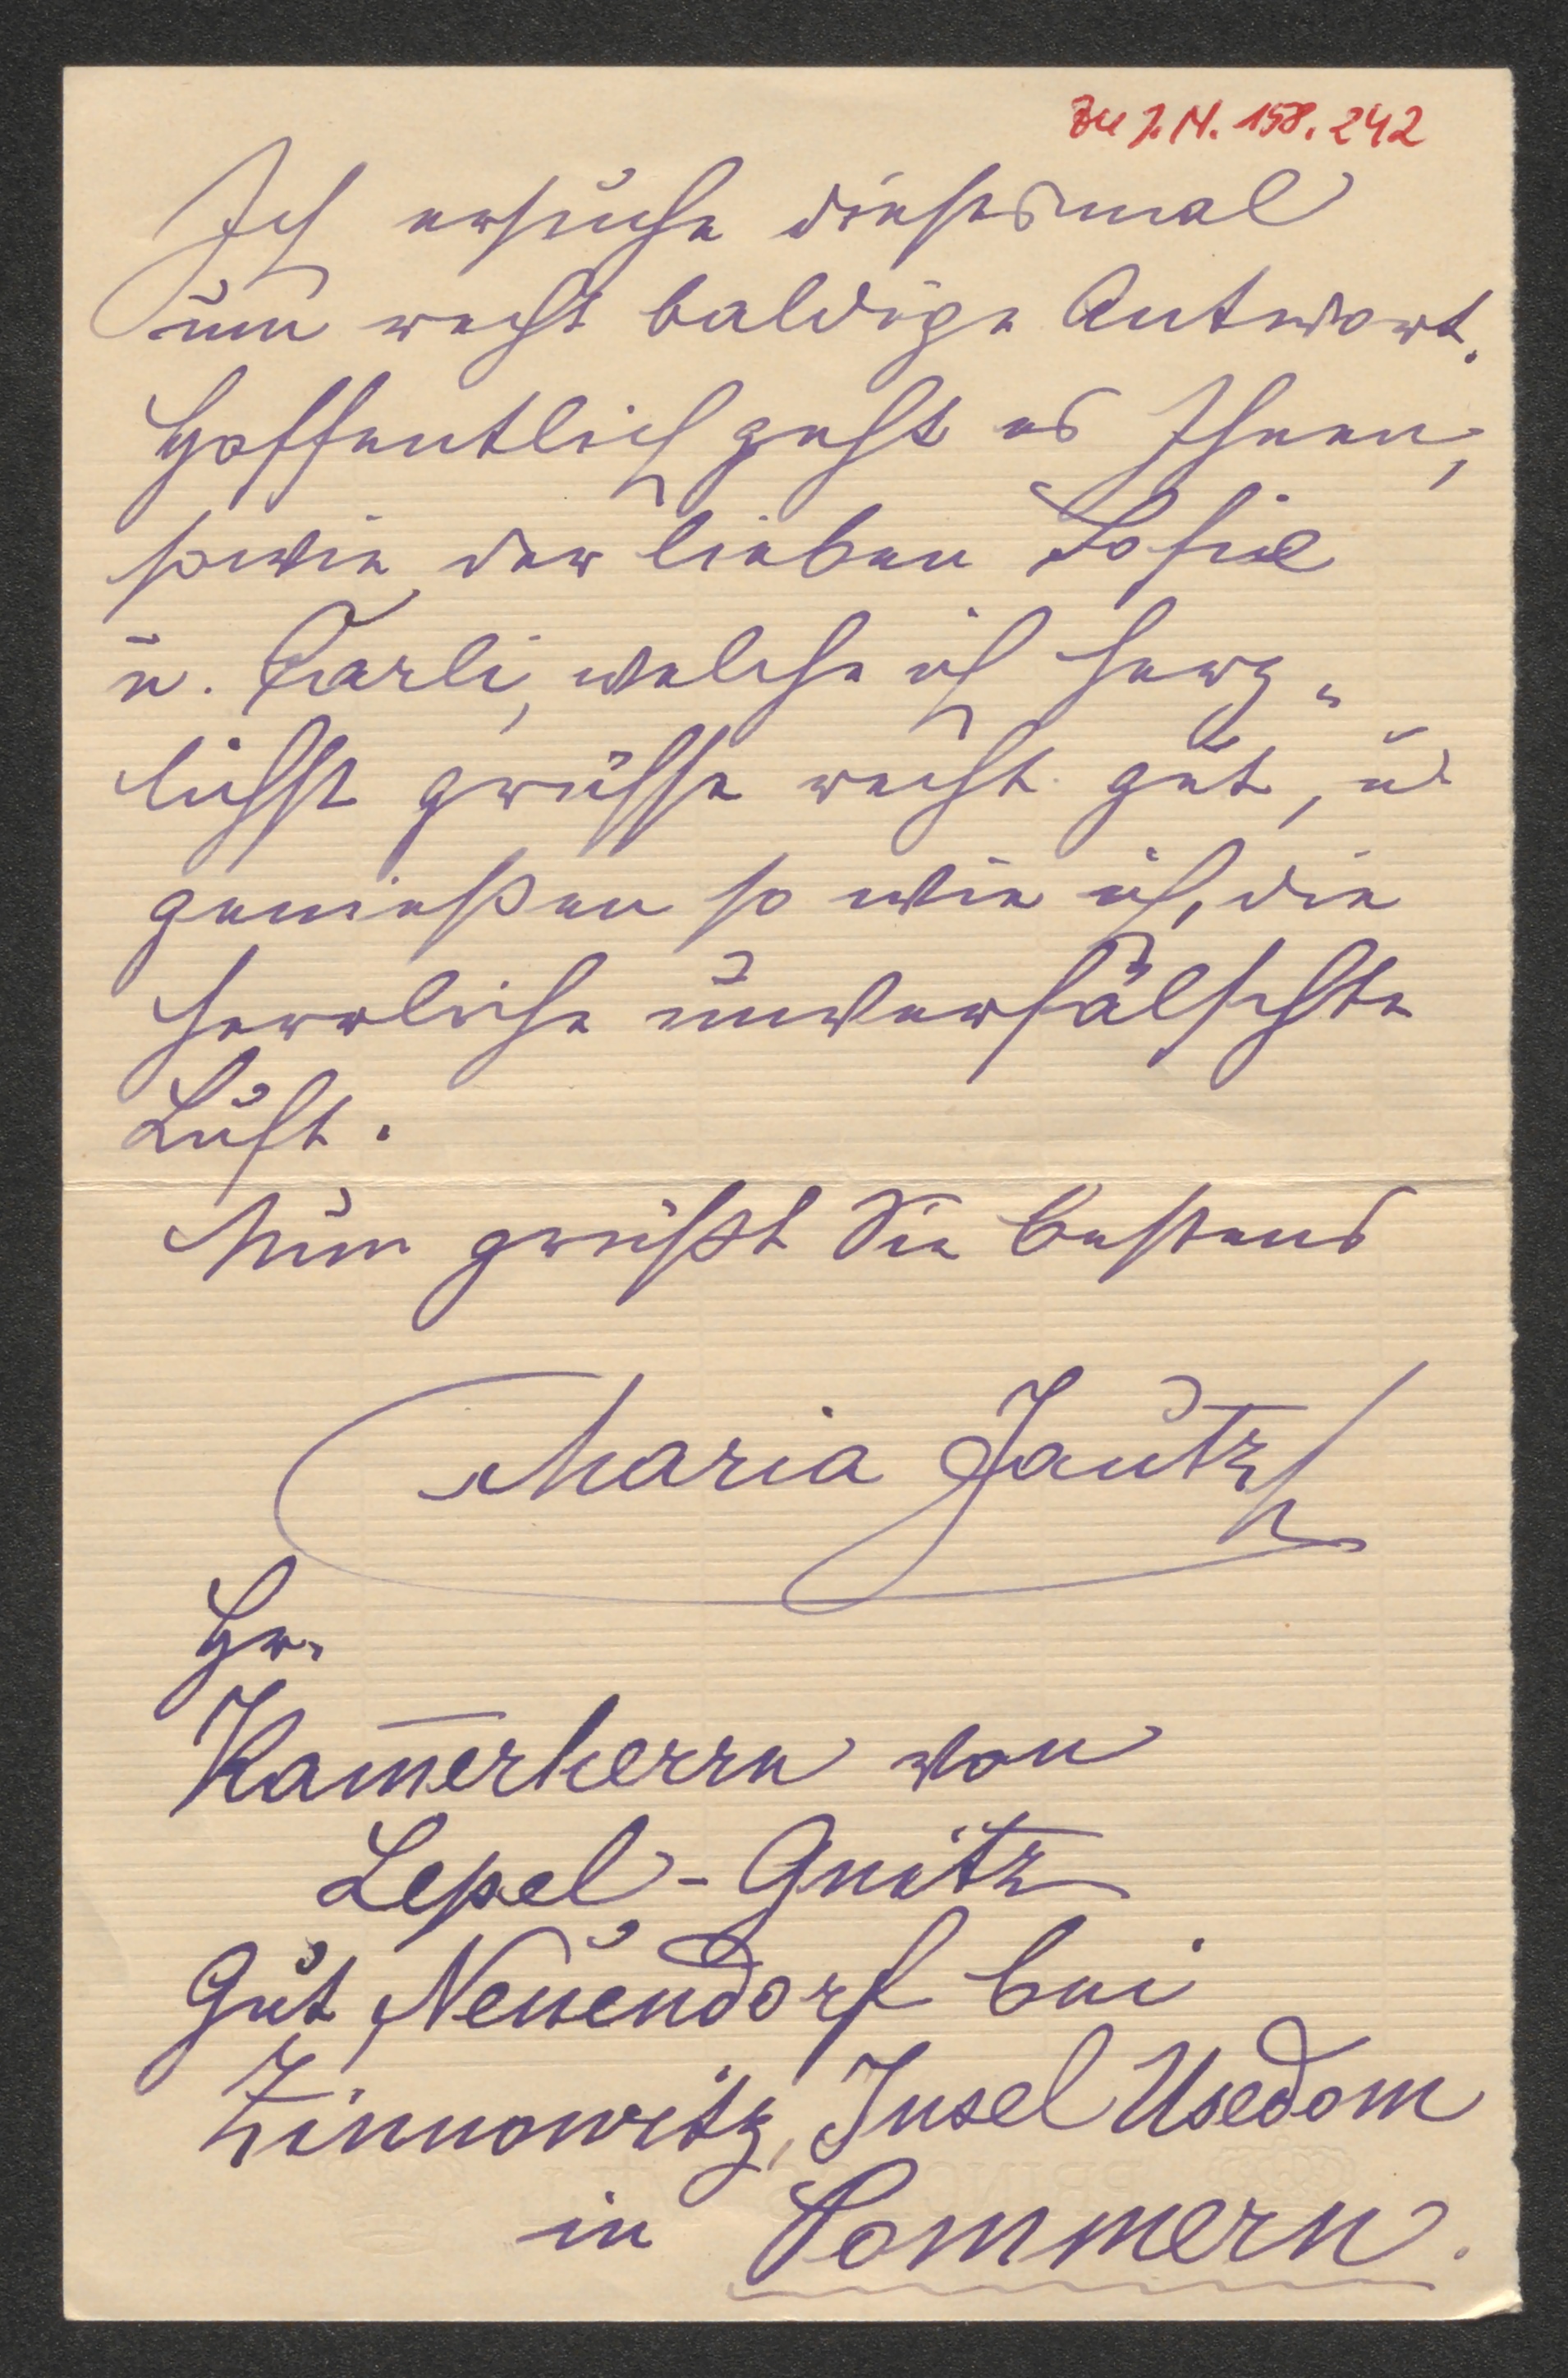 Zu J.N. 158.242
Ich ersuche diesesmal
um recht baldige Antwort.
Hoffentlich geht es Ihnen,
sowie der lieben Sofie
u. Carli, welche ich herz-
lichst grüsse recht gut, u
genießen so wie ich, die
herrliche unverfälschte
Luft.
Nun grüßt Sie bestens
Maria Jautz
Hr.
Kam̅erherrn von
Lepel-Gnitz
Gut Neuendorf bei
Zinnowitz, Insel Usedom
in Pommern.